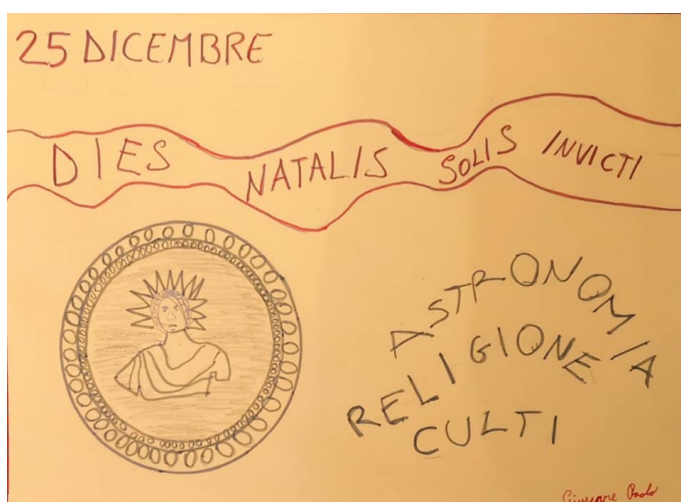 25 DICEMBRE
DIES NATALIS SOLIS INVICTI
ASTRONOMIA
RELIGIONE
CULTI
Giuseppe Paolo